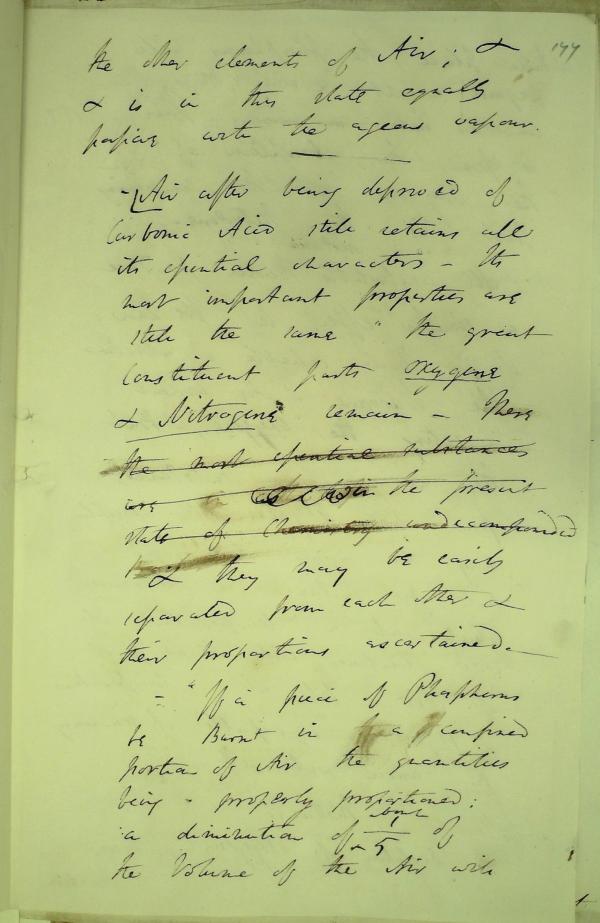 177
the other elements of Air; &
& is in this state equally
passive with the aqeous vapour.
- [Air after being deprived of
Carbonic Acid still retains all
its essential characters - Its
most important properties are
still the same " the great
constituent parts oxygene
& Nitrogene remain - These
the most essential substances
are in the present
state of Chemistry undecompounded
& they may be easily
separated from each other &
their proportions ascertained.-
- " If a piece of Phosphorus
be Burnt in a confined
portion of Air the quantities
being - properly proportioned;
about
a diminution of 1/5 of
the Volume of the Air will